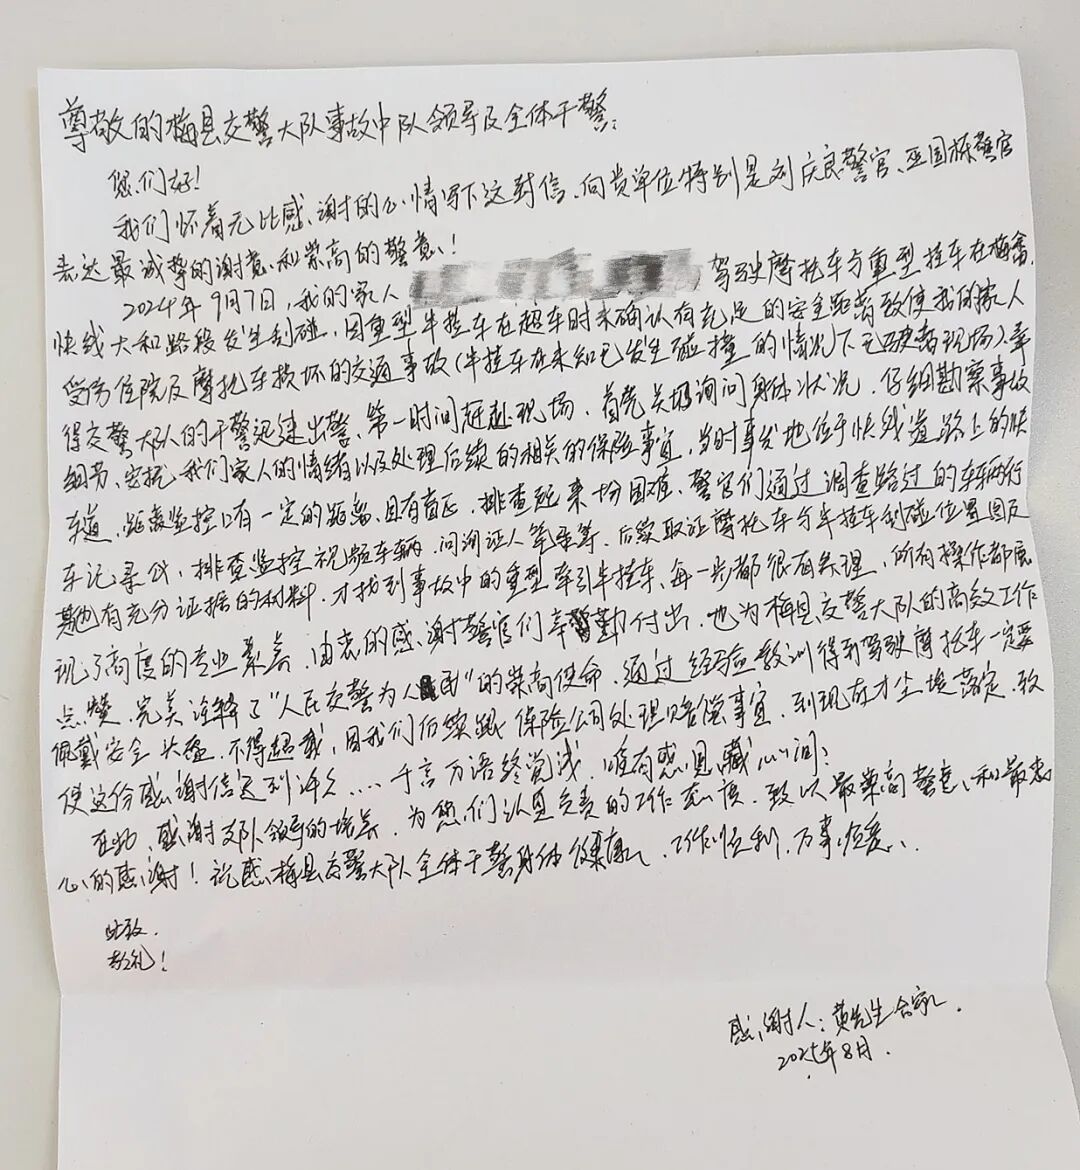 尊敬的梅县交警大队事故中队领导及全体干警:
您们好!
我们怀着无比感谢的心情写下这封信、向贵单位特别是刘庆良警官、巫国栋警官
表达最诚挚的谢意和崇高的警意!
2024年9月7日,我的家人 驾驶摩托车与重型挂车在梅畲
快线大和路段发生刮碰,因重型半挂车在超车时未确认有充足的安全距离致使我的家人
受伤住院及摩托车损坏的交通事故(半挂车在未知已发生碰撞的情况下已驶离现场)幸
得交警大队的干警迅速出警、第一时间赶赴现场、首先关切询问身体状况、仔细勘察事故
细节、安抚我们家人的情绪以及处理后续的相关的保险事宜,当时事发地位于快线道路上的快
车道、距离监控口有一定的距离、且有盲区、排查起来十份困难、警官们通过调查路过的车辆行
车记寻找、排查监控视频车辆、问询证人笔录等、后续取证摩托车与半挂车刮碰位置图及
其他有充分证据的材料、才找到事故中的重型牵引半挂车、每一步都很有条理、所有操作都展
现了高度的专业素养、由衷的感谢警官们辛勤付出、也为梅县交警大队的高效工作
点赞、完美诠释了“人民交警为人民”的崇高使命、通过经验教训得到驾驶摩托车一定要
佩戴安全头盔、不得超载,因我们后续跟保险公司处理赔偿事宜、到现在才尘埃落定、致
使这份感谢信迟到许久....千言万语终觉浅、唯有感恩藏心间:
在此、感谢支队领导的培养、为您们认真负责的工作态度、致以最崇高警意、和最衷
心的感谢!祝愿梅县交警大队全体干警身体健康、工作顺利、万事如意、
此致
敬礼!
感谢人:黄先生合家、
2025年8月.